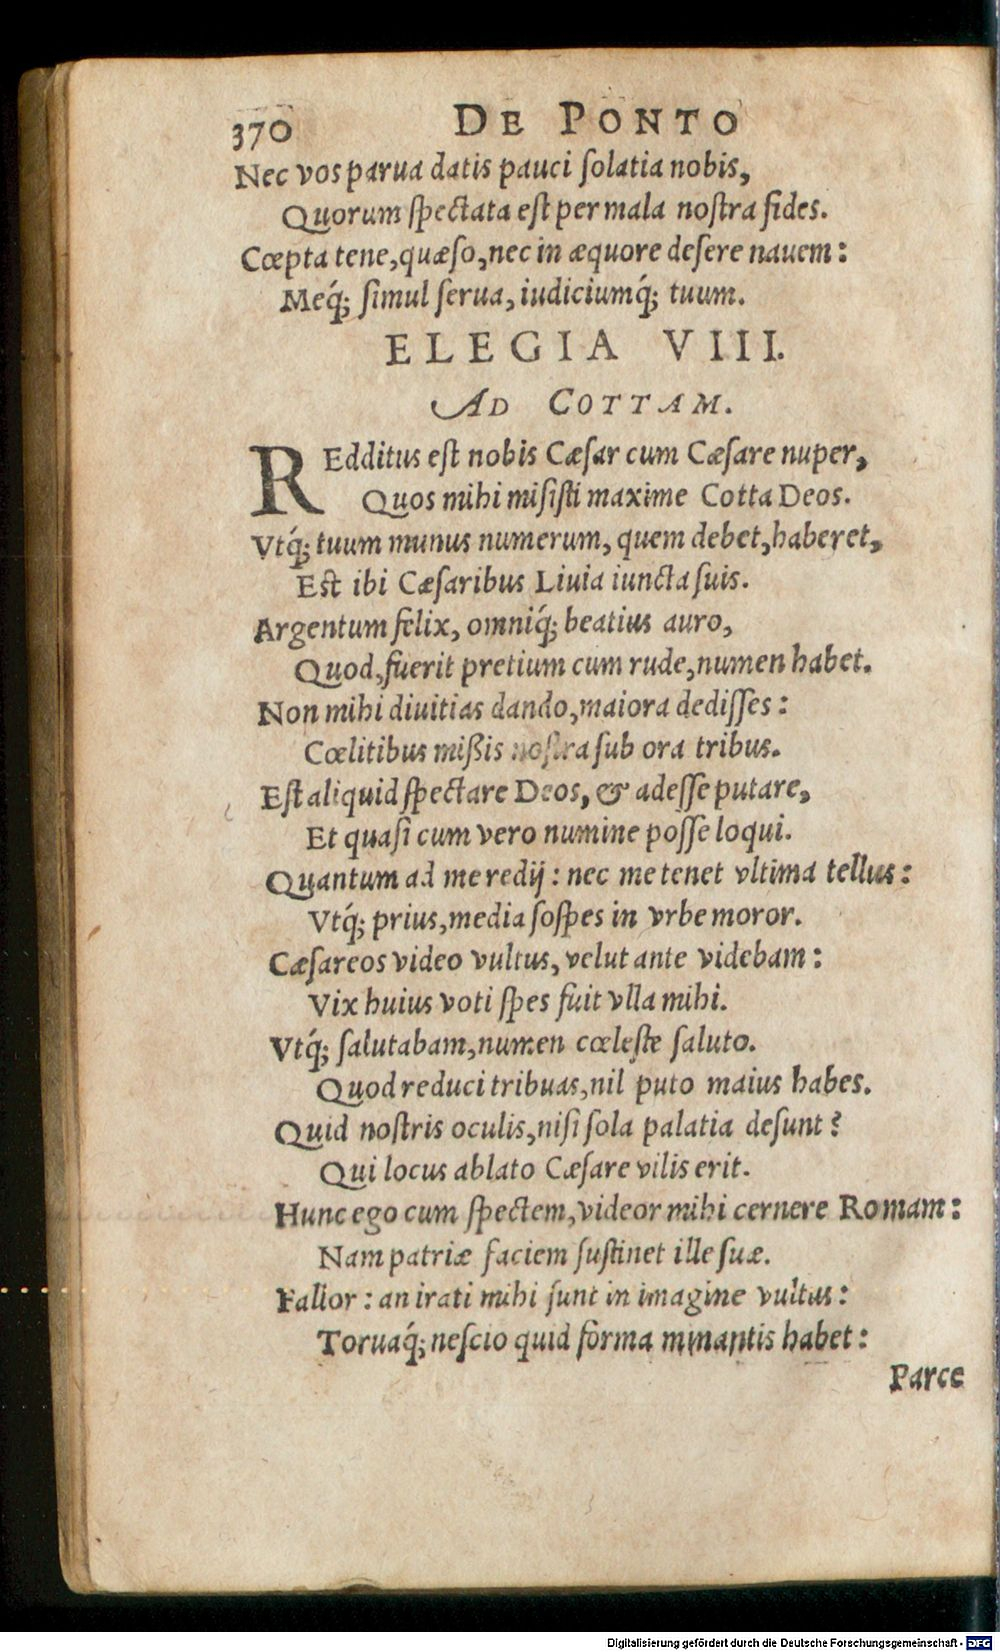 370 DE PONTO
Nec vos parua datis pauci ſolatia nobis,
Quorum ſpectata eſt per mala noſtra fides.
Cœpta tene, quæſo, nec in æquore deſere nauem:
Meq́; ſimul ſerua, iudiciumq́; tuum.
ELEGIA VIII.
AD COTTAM.
REdditus eſt nobis Cæſar cum Cæſare nuper,
Quos mihi miſiſti maxime Cotta Deos.
Vtq́; tuum munus numerum, quem debet, haberet,
Eſt ibi Cæſaribus Liuia iuncta ſuis.
Argentum felix, omniq́; beatius auro,
Quod, fuerit pretium cum rude, numen habet.
Non mihi diuitias dando, maiora dediſſes:
Cœlitibus mißis noſtra ſub ora tribus.
Eſt aliquid ſpectare Deos, & adeſſe putare,
Et quaſi cum vero numine poſſe loqui.
Quantum ad me redij: nec me tenet vltima tellus:
Vtq́; prius, media ſoſpes in vrbe moror.
Cæſareos video vultus, velut ante videbam:
Vix huius voti ſpes fuit vlla mihi.
Vtq́; ſalutabam, numen cœleſte ſaluto.
Quod reduci tribuas, nil puto maius habes.
Quid noſtris oculis, niſi ſola palatia deſunt?
Qui locus ablato Cæſare vilis erit.
Hunc ego cum ſpectem, videor mihi cernere Romam:
Nam patriæ faciem ſuſtinet ille ſuæ.
Fallor: an irati mihi ſunt in imagine vultus:
Toruaq́; neſcio quid forma minantis habet:
Parce
Digitalisierung gefördert durch die Deutsche Forschungsgemeinschaft - DFG